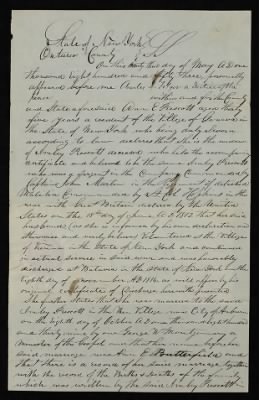 State of New York
Ontario County } ss
On this thirty first day of May A.D. one
thousand eight hundred and fifty three, personally
appeared before me a Justice of the
peace within and for the County
and State aforesaid Ann E Prescott aged thirty
five years a resident of the Village of Geneva in
the State of New York who being duly sworn
according to law declares that she is the widow
of Imley Prescott deceased who late the
certificate and believed to be the same Imley Prescott
who was a sergeant in the Company Commanded by
Captain John in the Regiment of
in the
war with Great Britain declared by the United
States on the 18th day of June A.D. 1812 that her said
husband (as she is informed by his own declaration and
otherwise and such believes) the Village
of in the State of New York and continued
in actual service in said war and was honorably
discharged at Batavia in the State of New York on the
eighth day of November A.D. 1812 as will appear by his
original certificate of discharge herewith
She further states that she was married to the said
Imley Prescott in the then Village now City of Auburn
on the eighth day of October A.D. one thousand eight hundred
and thirty nine by one George W Montgomery a
Minister of the Gospel and that her name before her
said marriage was Ann E Butterfield and
that there is a record of her said marriage together
with the record of the Births & deaths of the family
which was written by the said Imley Prescott